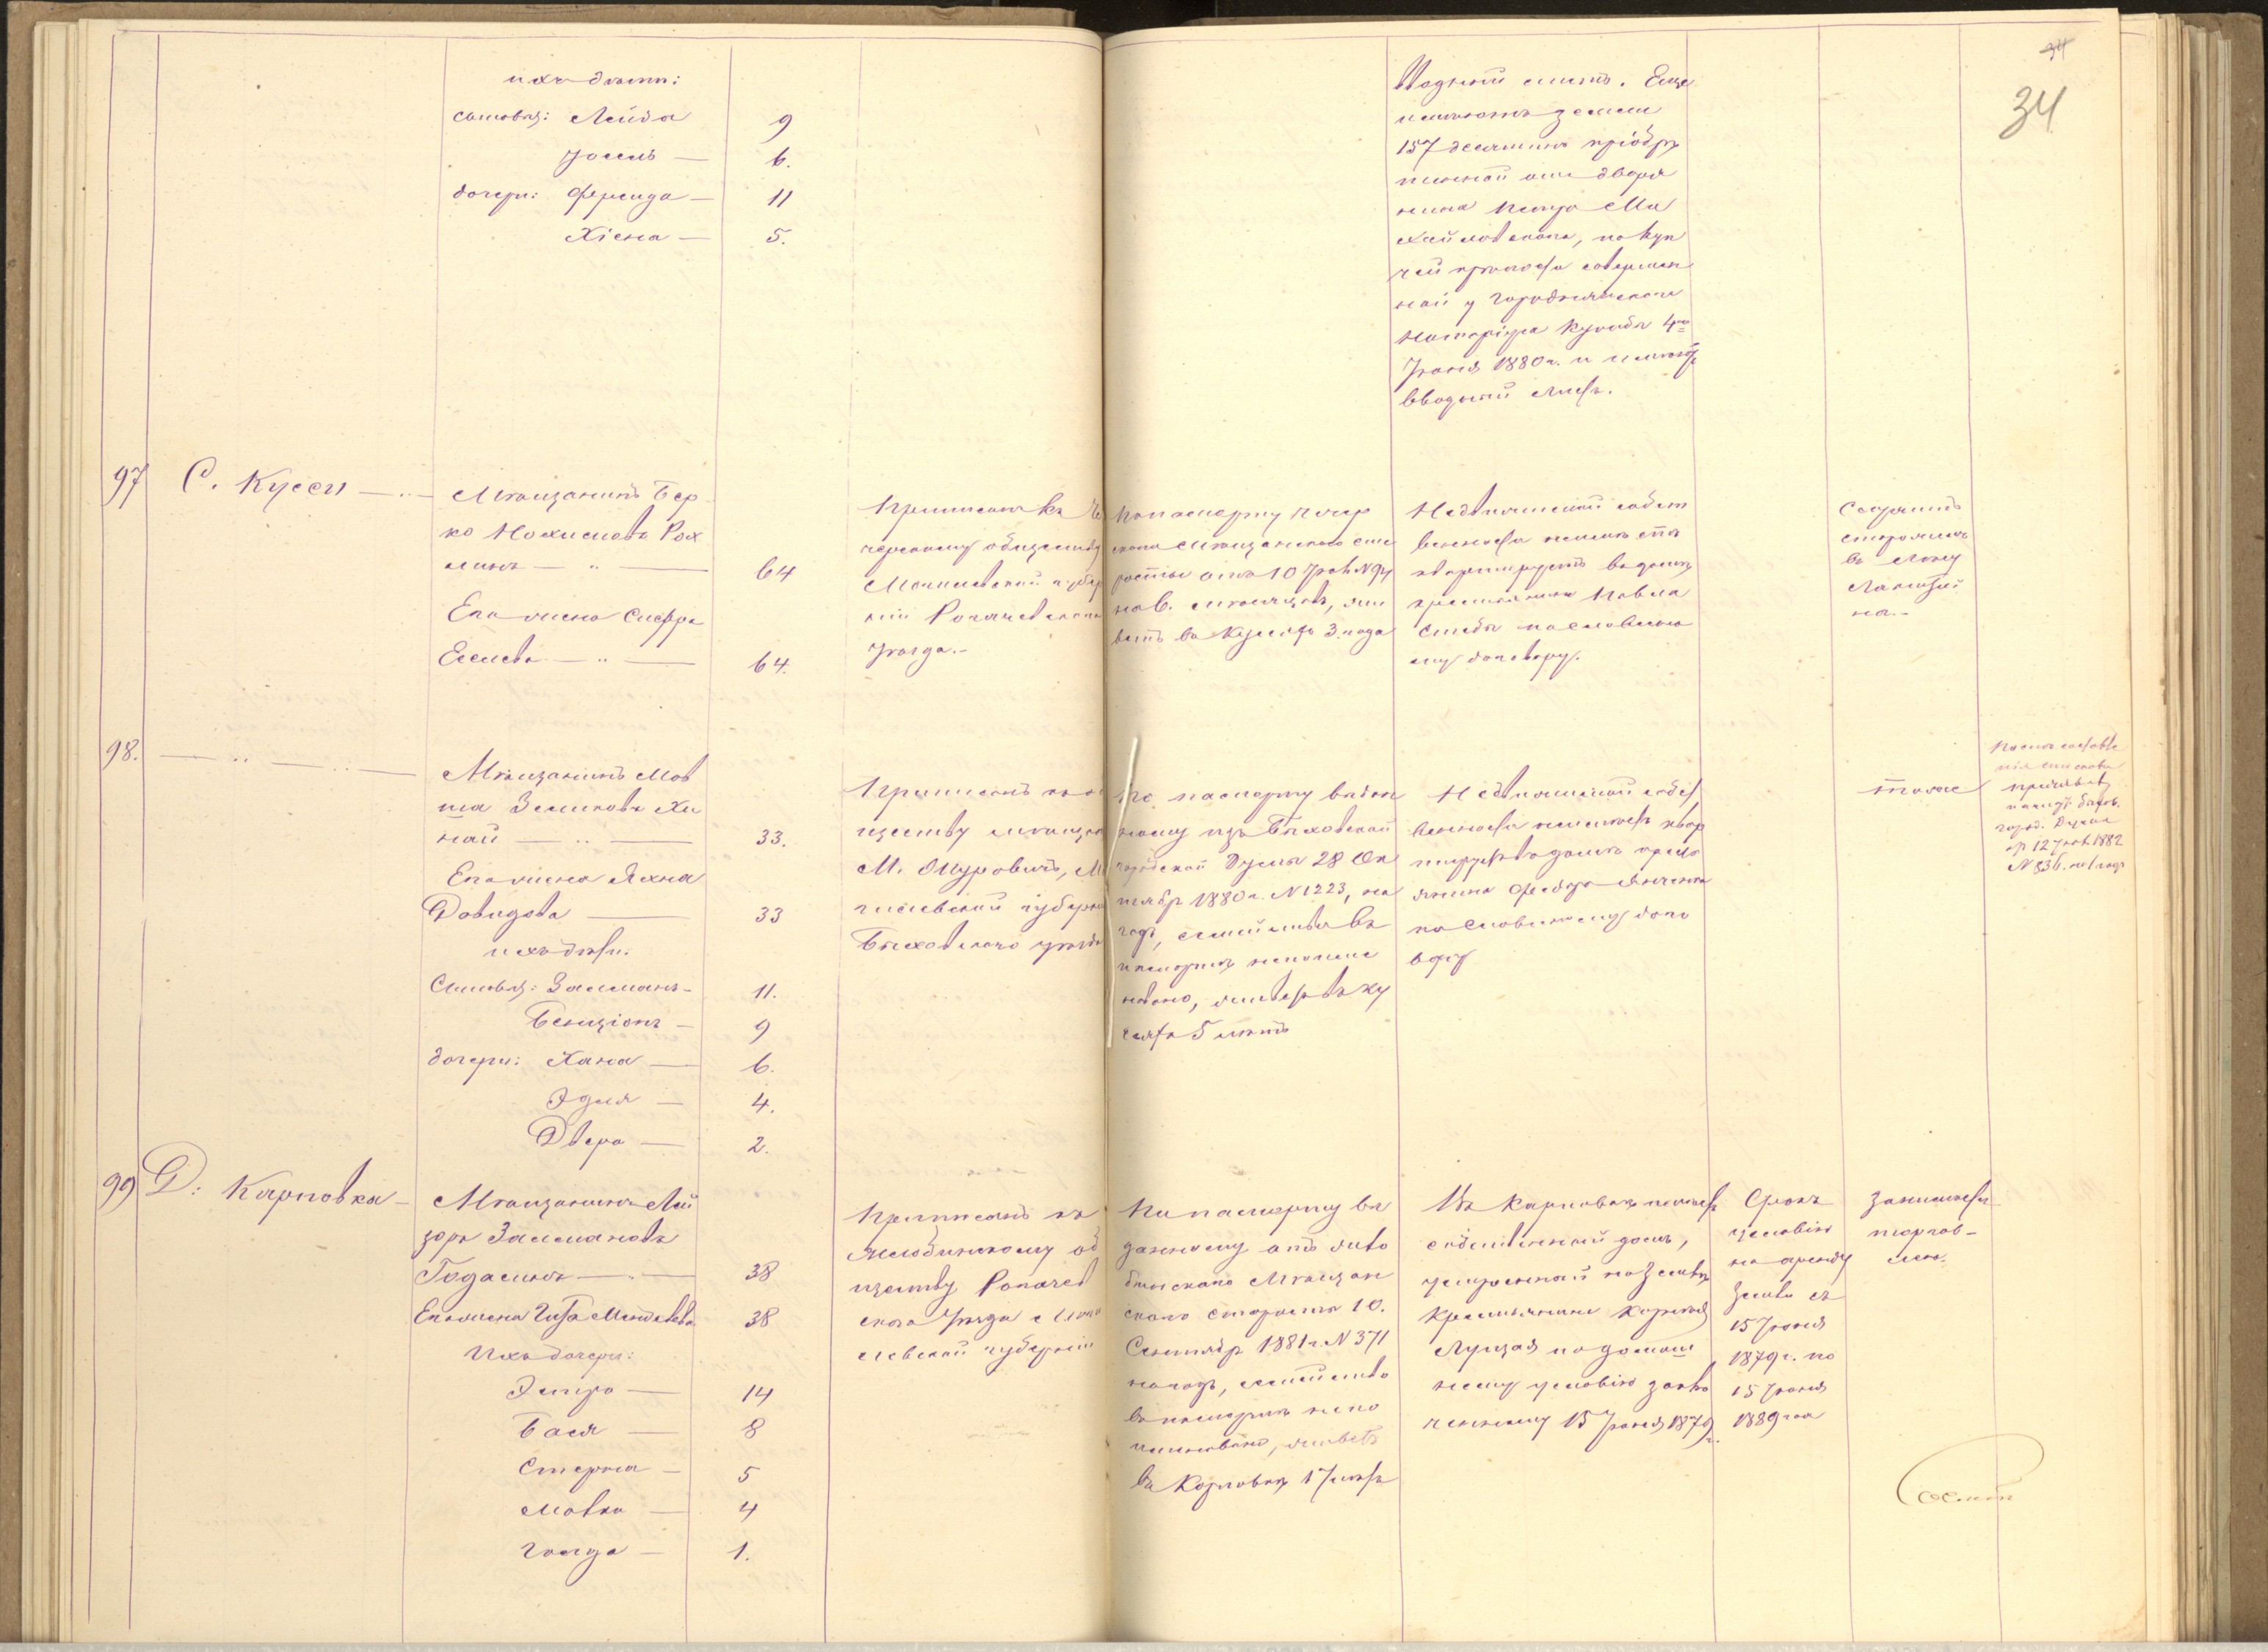 34
ихъ дѣти:
сыновья: Лейба 9
Іосель — 6.
дочери: Фрейда — 11
Хіена — 5.
Вводный листъ. Еще
имѣютъ земли
157 десятинъ пріобрѣ
тенной отъ дворя
нина Петра Ми
хайловскаго, по куп
чей крѣпости совершен
ной у Городнянскаго
Нотаріуса 4го
Іюня 1880 г. и имѣютъ
вводный листъ.
97 С. Куссѣ — „ —
Мѣщанинъ Бер
ко Нохимовъ Рох
линъ — „ — 64
Его жена Сифра
Еселева — „ — 64.
Приписанъ къ Че
черскому обществу
Могилевской губер
ніи Рогачевскаго
уѣзда.-
По паспорту Чечер
скаго мѣщанскаго ста
росты отъ 10
на 6. мѣсяцевъ, жи
ветъ въ 3. года
Недвижимой собст
венности неимѣетъ
квартируетъ въ домѣ
крестьянина Павла
по словесно
му договору.
Служитъ
сторожемъ
въ лѣсу
98. — „ — „ —
Мѣщанинъ Мов
ша Зеликовъ Хи
най — „ — 33.
Его жена Яхна
Давидова — 33
ихъ дѣти.
Сыновья: Залманъ — 11.
Бенціонъ — 9
дочери: Хана — 6.
Эдля — 4.
Двера — 2.
Приписанъ къ о
ществу мѣщан
М. Журовичъ, Мо
гилевской губерн
Быховскаго уѣзда
По паспорту выдан
ному изъ Быховской
городской Думы 28 Ок
тября 1880 г. N 1223, на
годъ, семейство въ
паспортѣ непоиме
новано, живетъ въ Ку
5 лѣтъ
Недвижимой собст
венности неимѣетъ квар
тируетъ въ домѣ кресть
янина Федора
по словесному дого
вору
тоже
Послѣ составле
нія списковъ
город. Думою
1882
N 536. на 1 годъ
99 Д: Карповка —
Мѣщанинъ Лей
зоръ Залмановъ
Годалинъ — „ — 38
Его жена Гита Менделева 38
Ихъ дочери:
Эстра — 14
Бася — 8
Стерна — 5
Мовка — 4
Голда — 1.
Приписанъ къ
об
ществу Рогачев
скаго уѣзда Моги
левской губерніи
По паспорту вы
данному отъ
Мѣщан
скаго старосты 10.
Сентября 1881 г. N 371
на годъ, семейство
въ паспортѣ непо
именовано, живетъ
въ Карповкѣ 17 лѣтъ
Въ Карповкѣ имѣетъ
собственный домъ,
устроенный на землѣ
крестьянина Корнѣя
Луцая по домаш
нему условію заклю
ченному 15 Іюня 1879 г.
Срокъ
условію
на аренду
земли съ
15 Іюня
1879 г. по
15 Іюня
1889 года
Занимается
торгов-
лею.